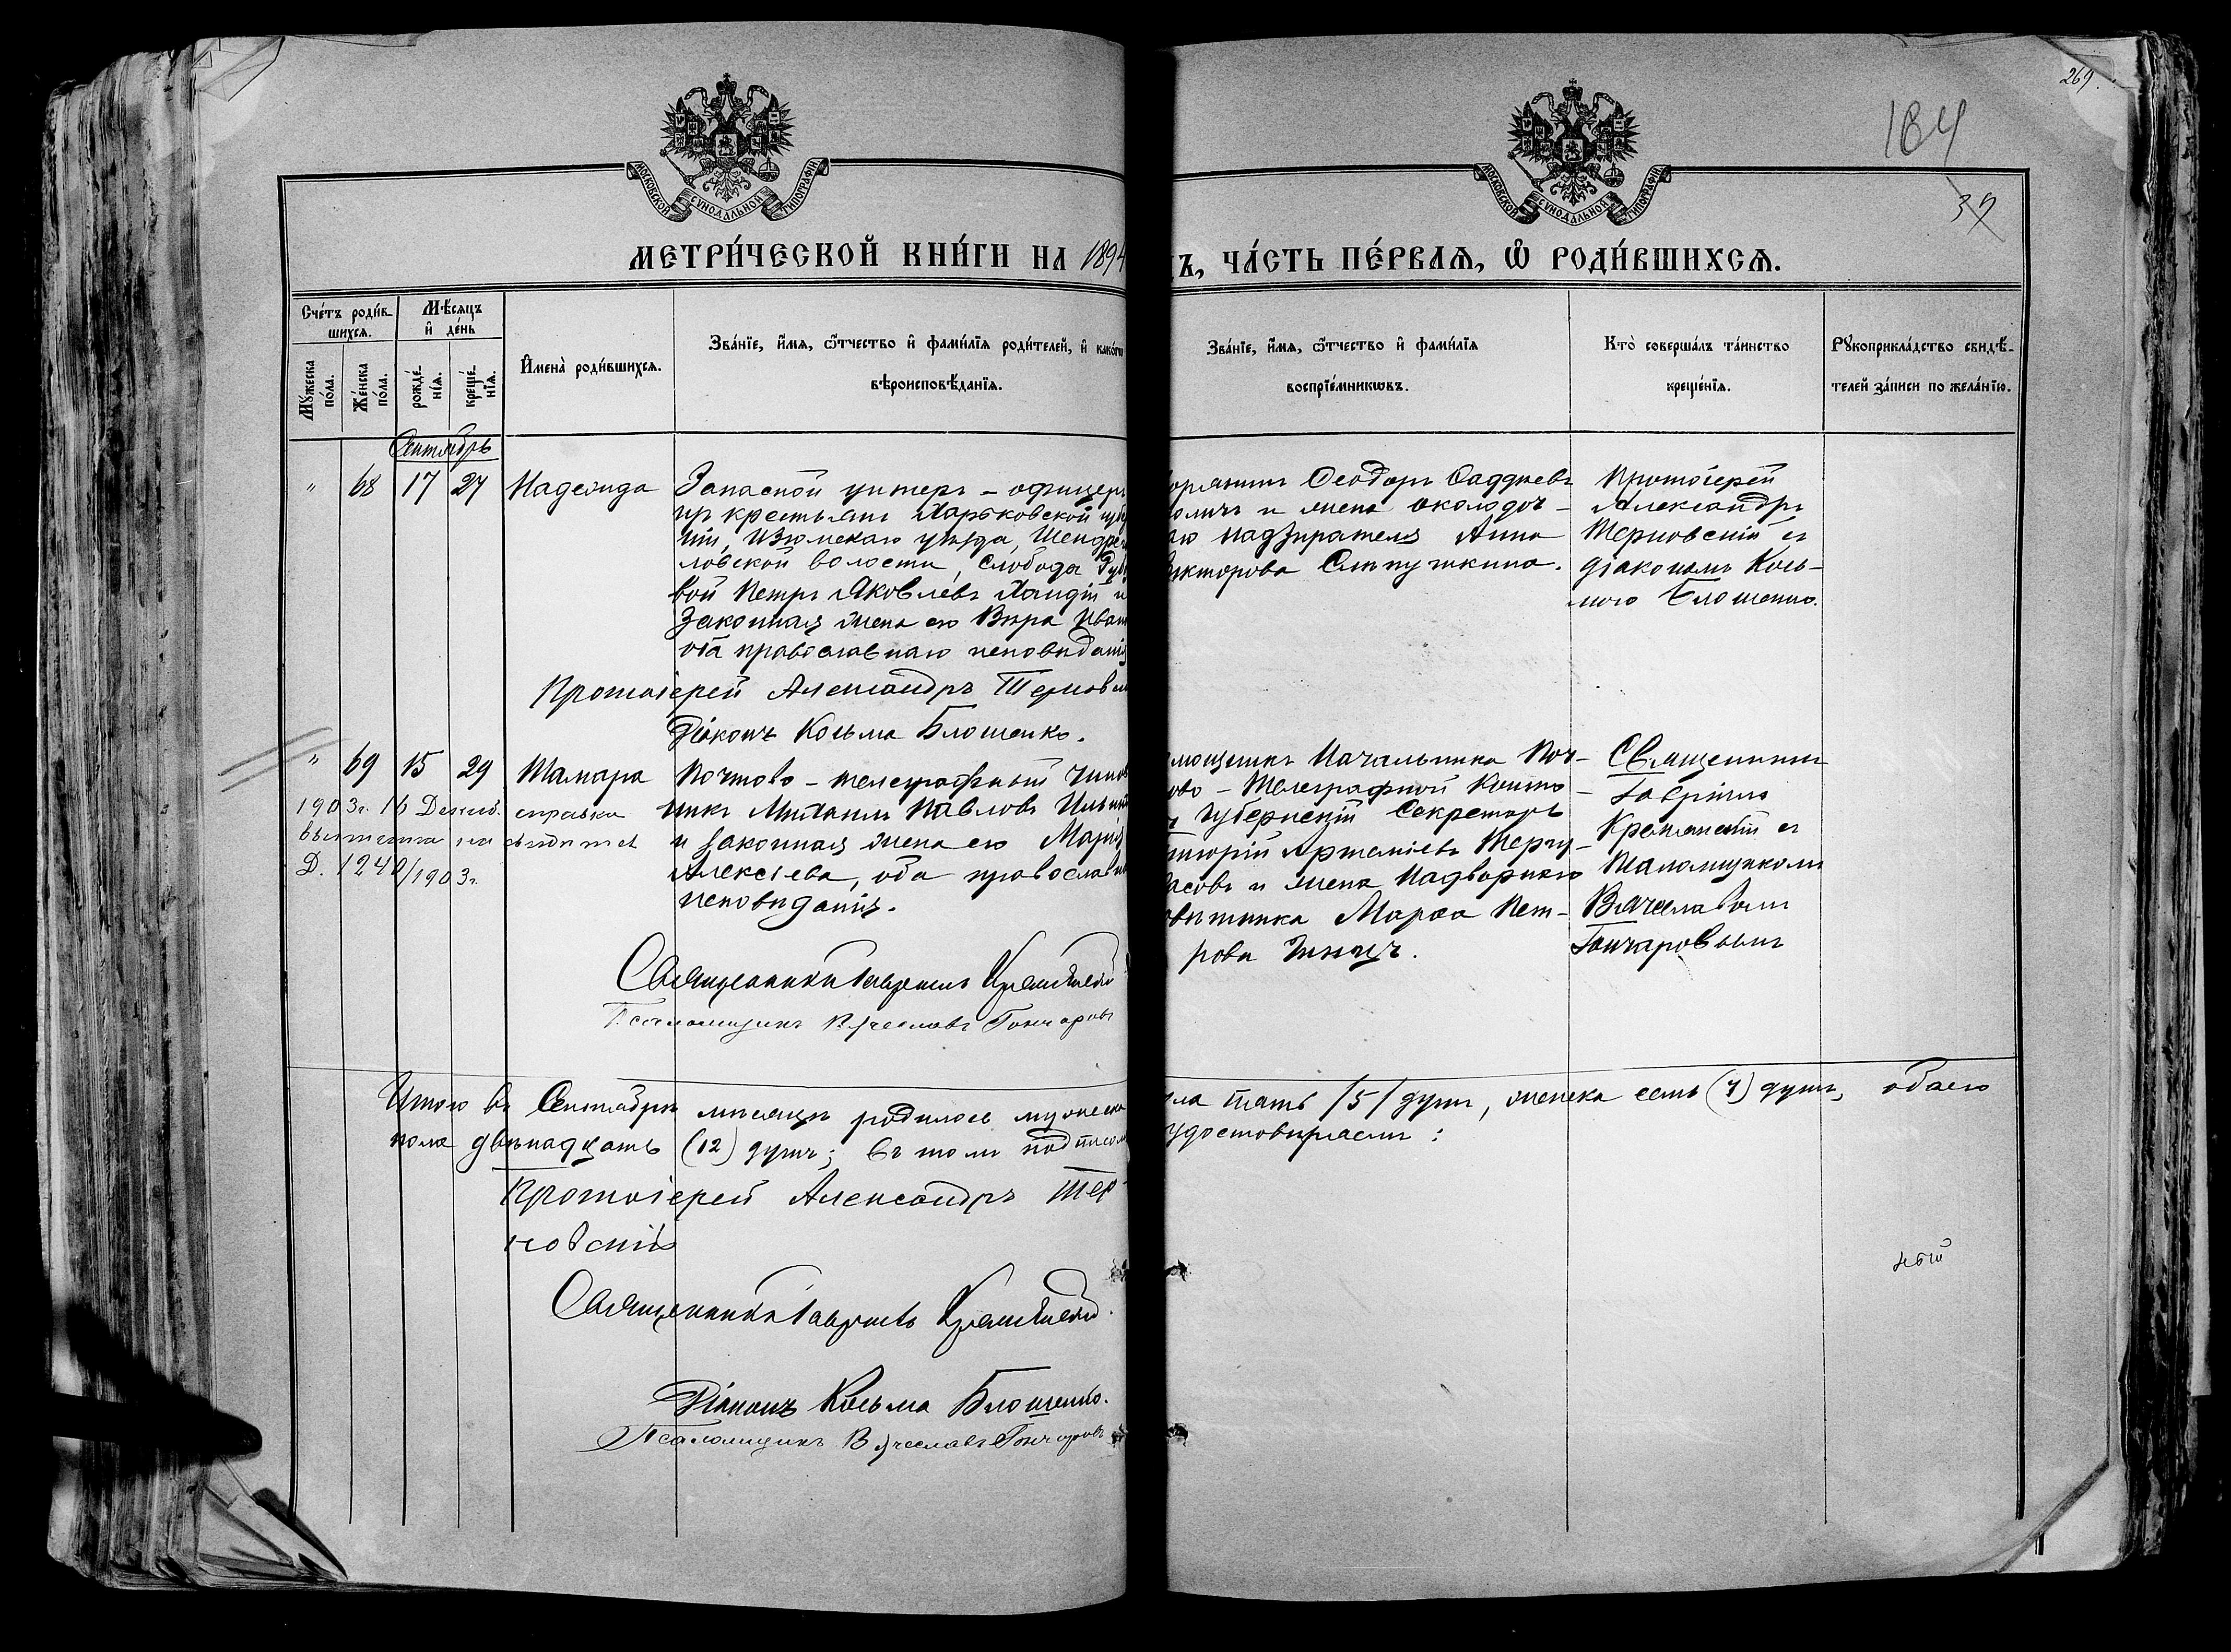 269.
184
39
МОСКОВСКОЙ СУНОДАЛЬНОЙ ТИПОГРАФІИ
МОСКОВСКОЙ СУНОДАЛЬНОЙ ТИПОГРАФІИ
МЕТРИ́ЧЕСКОЙ КНИ́ГИ НА 1894
Ъ, ЧА́СТЬ ПЕ́РВАѦ, Ѡ҆ РОДИ́ВШИХСѦ.
Сче́тъ роди́в-
шихсѧ.
Мѣ́сѧцъ
и҆ де́нь
Мꙋ́жеска по́ла.
Же́нска по́ла.
рожде́-
нїѧ.
креще́-
нїѧ.
И҆мена̀ роди́вшихсѧ.
Зва́нїе, и҆́мѧ, ѻ҆́тчество и҆ фами́лїѧ роди́телей, и҆ како́гѡ
вѣроисповѣ́данїѧ.
Зва́нїе, и҆́мѧ, ѻ҆́тчество и҆ фами́лїѧ
воспрїе́мникѡвъ.
Кто̀ соверша́лъ та́инство
креще́нїѧ.
Рꙋкоприкла́дство свидѣ́-
телей за́писи по жела́нїю.
Сентябрь
" 68 17 27 Надежда Запасной унтеръ-офицеръ
изъ крестьянъ Харьковской губе
ніи, Изюмскаго уѣзда,
ловской волости, слобода
вой Петръ Яковлевъ и
законная жена его Вѣра Иван
оба православнаго исповѣданія
Протоіерей Александръ Терновск
Діаконъ Косьма Блошенко.
Ѳеодоръ
и жена околодоч-
аго надзирателя Анна
икторова
Протоіерей
Александръ
Терновскій съ
діакономъ Кось-
мою Блошенко.
" 69 15 29 Тамара Почтово-телеграфный чинов
никъ Михаилъ Павловъ
и законная жена его Марія
Алексѣева, оба православн
исповѣданія.
1903г. 16 справка
выписана на
Д. 1240/1903г.
Священникъ Гавріилъ
Псаломщикъ Вячеславъ Гончаровъ
мощникъ Начальника Поч-
ово-Телеграфной Конто-
ы Губернскій Секретарь
игорій Артеміевъ
и жена Надворнаго
овѣтника Марѳа Пет-
рова
Священникъ
Гавріилъ
съ
Псаломщикомъ
Вячеславомъ
Гончаровымъ
Итого въ Сентябрѣ мѣсяцѣ родилось мужеска
ола пять /5/ душъ, женска семь (7) душъ, обоего
пола двѣнадцать (12) душъ; въ томъ подписом
удостовѣряемъ:
Протоіерей Александръ Тер-
новскій
Священникъ Гавріилъ
Діаконъ Косьма Блошенко.
Псаломщикъ Вячеславъ Гончаровъ